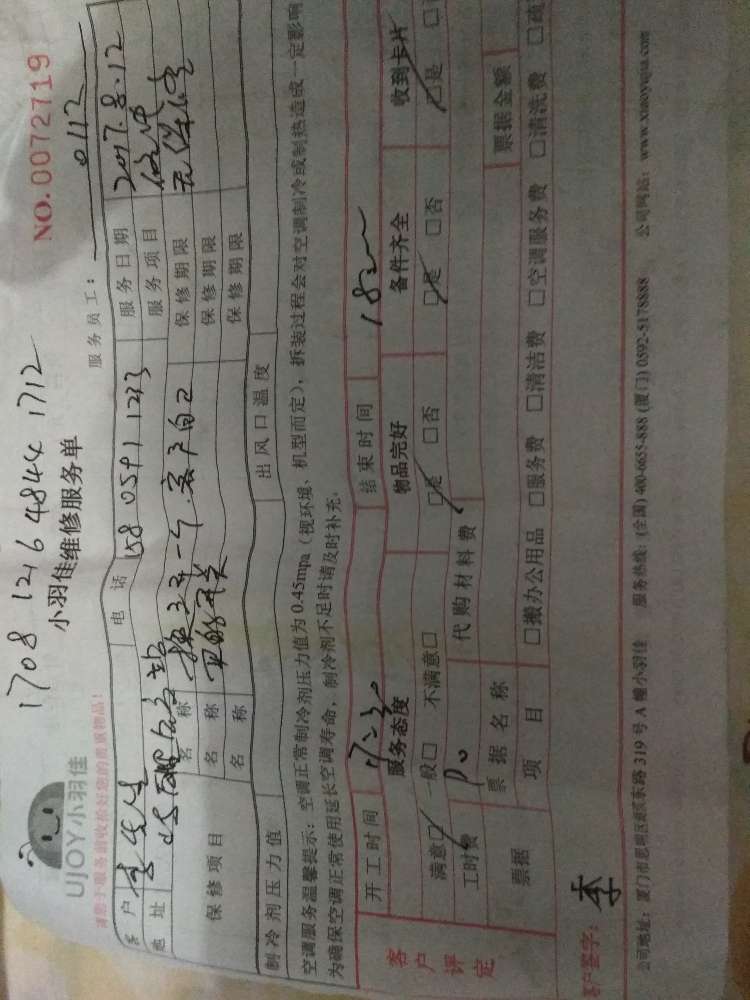 1708 1216 4844 1712
UJOY小羽佳
小羽佳维修服务单
NO.0072719
请您于服务前收捡好您的贵重物品!
服务员工: 0112
客户 李先生 电话 158 0591 1233 服务日期 2017.8.12
地址 服务项目
保修项目 名称 换 客户自己 保修期限 无保修
名称 开关 保修期限
名称 保修期限
制冷剂压力值 出风口温度
空调服务温馨提示: 空调正常制冷剂压力值为 0.45mpa (视环境、机型而定), 拆装过程会对空调制冷或制热造成一定影响
为确保空调正常使用延长空调寿命, 制冷剂不足时请及时补充。
开工时间 结束时间
客户评定 服务态度 物品完好 备件齐全 收到卡片
满意□ 一般□ 不满意□ □是 □否 □是 □否 □是
工时费 代购材料费
票据 票据名称 票据金额
项目 □搬办公用品 □服务费 □清洁费 □空调服务费 □清洗费 □疏
客户签字: 李
公司地址: 厦门市思明区莲东路 319 号 A 幢小羽佳 服务热线: (全国) 400-6655-888 (厦门) 0592-5178888 公司网站: www.xiaoyujia.com